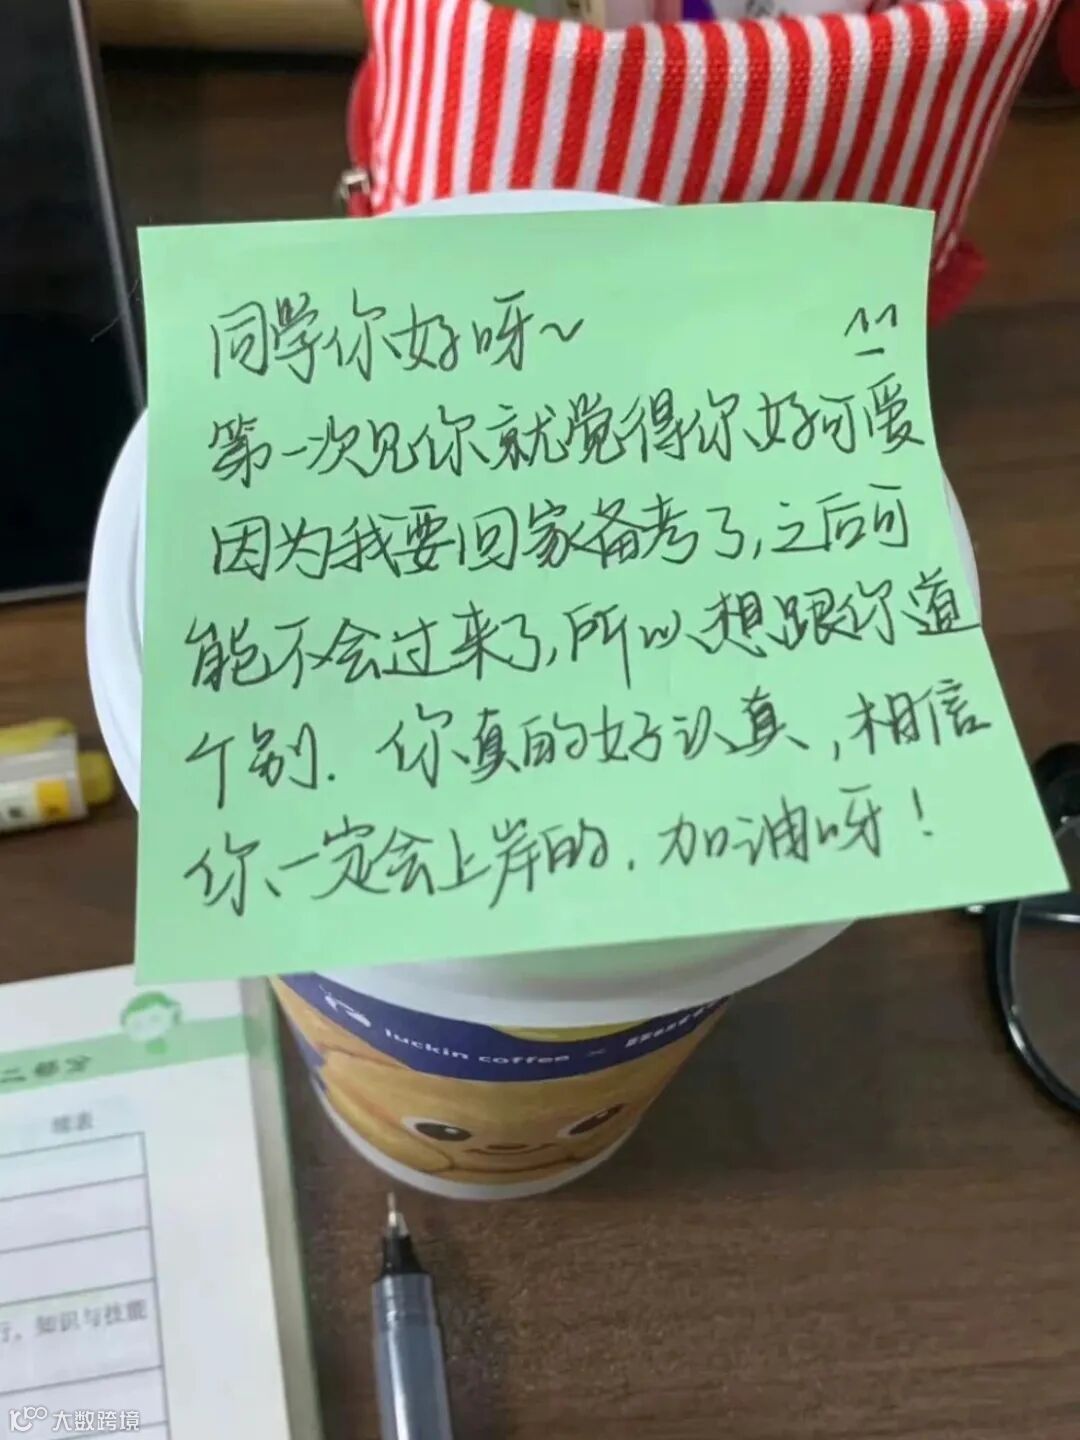 同学你好呀~
第一次见你就觉得你好可爱
因为我要回家备考了,之后可
能不会过来了,所以想跟你道
个别. 你真的好认真,相信
你一定会上岸的.加油呀!
luckin coffee ×
二部分
续表
行,知识与技能
大数跨境